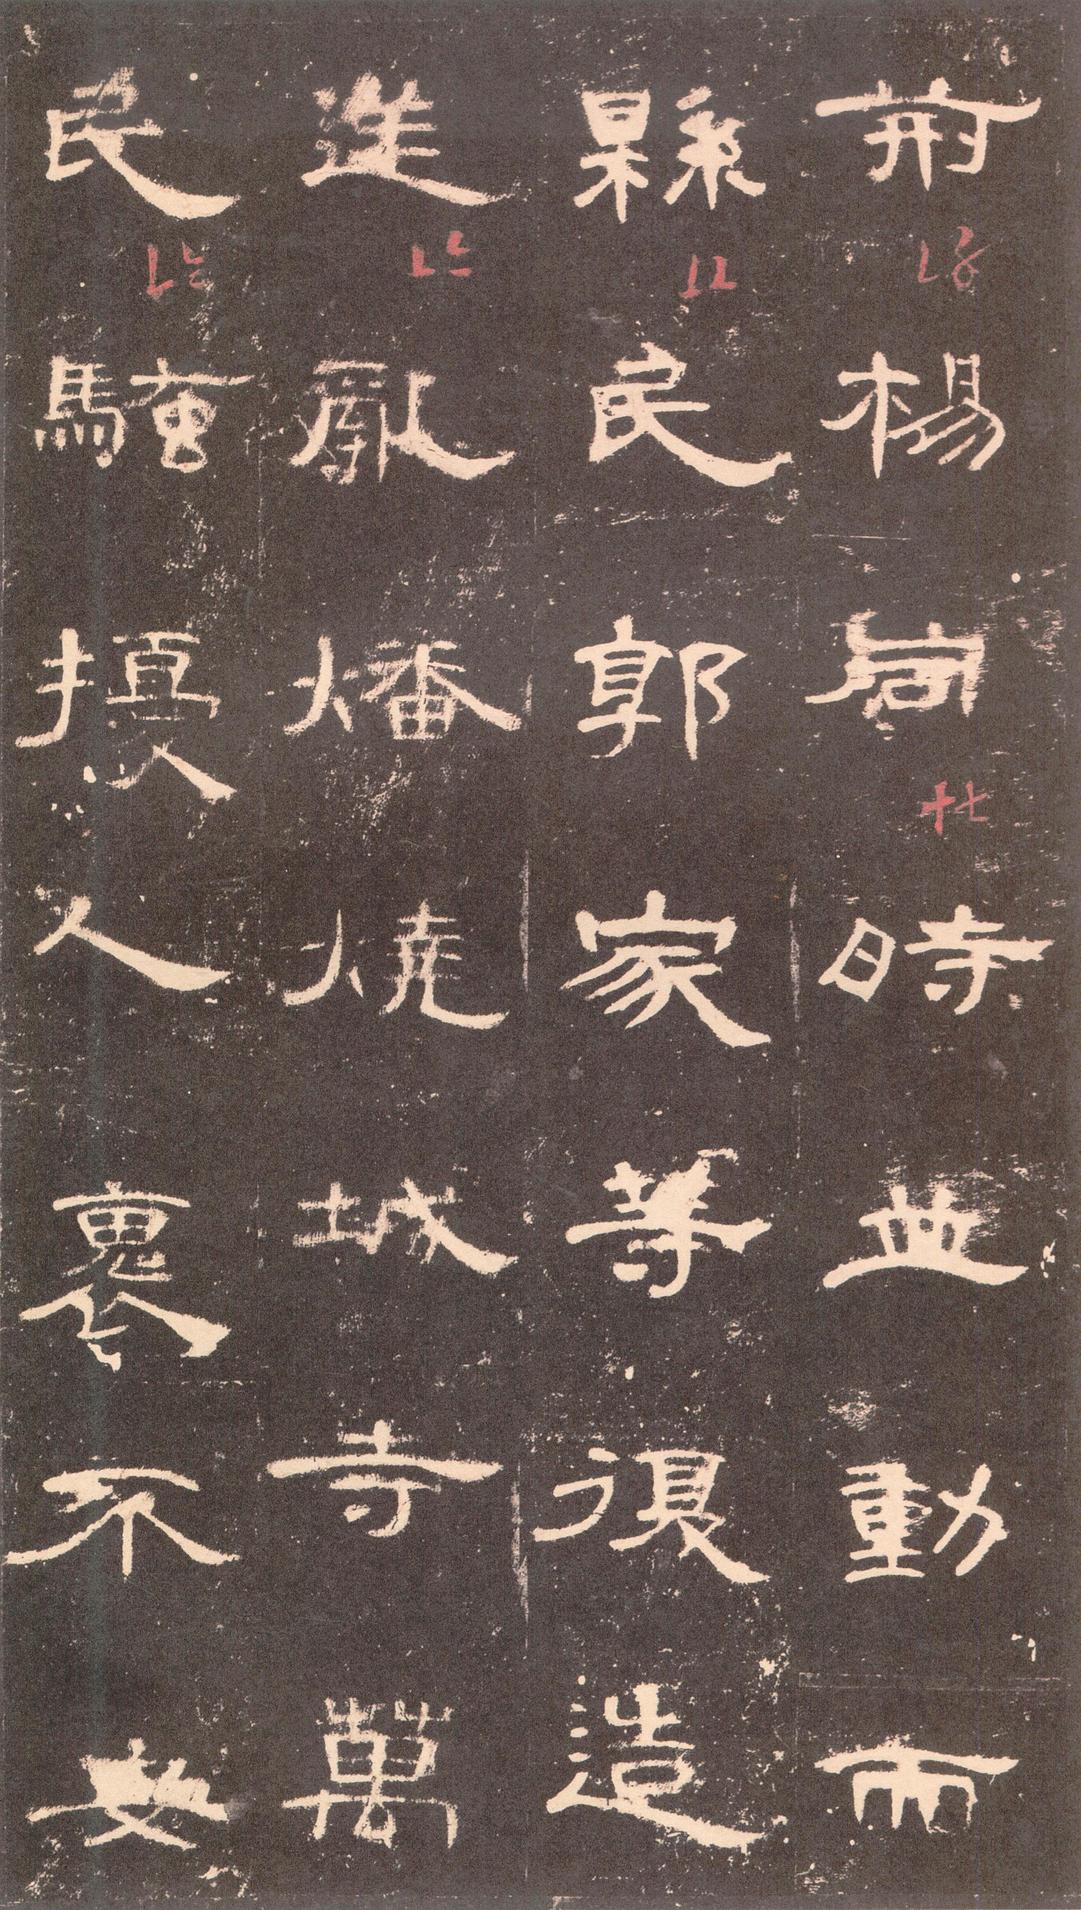 荊楊同時並動而
縣民郭家等復造
逆亂燔燒城寺萬
民騷擾人裹不安